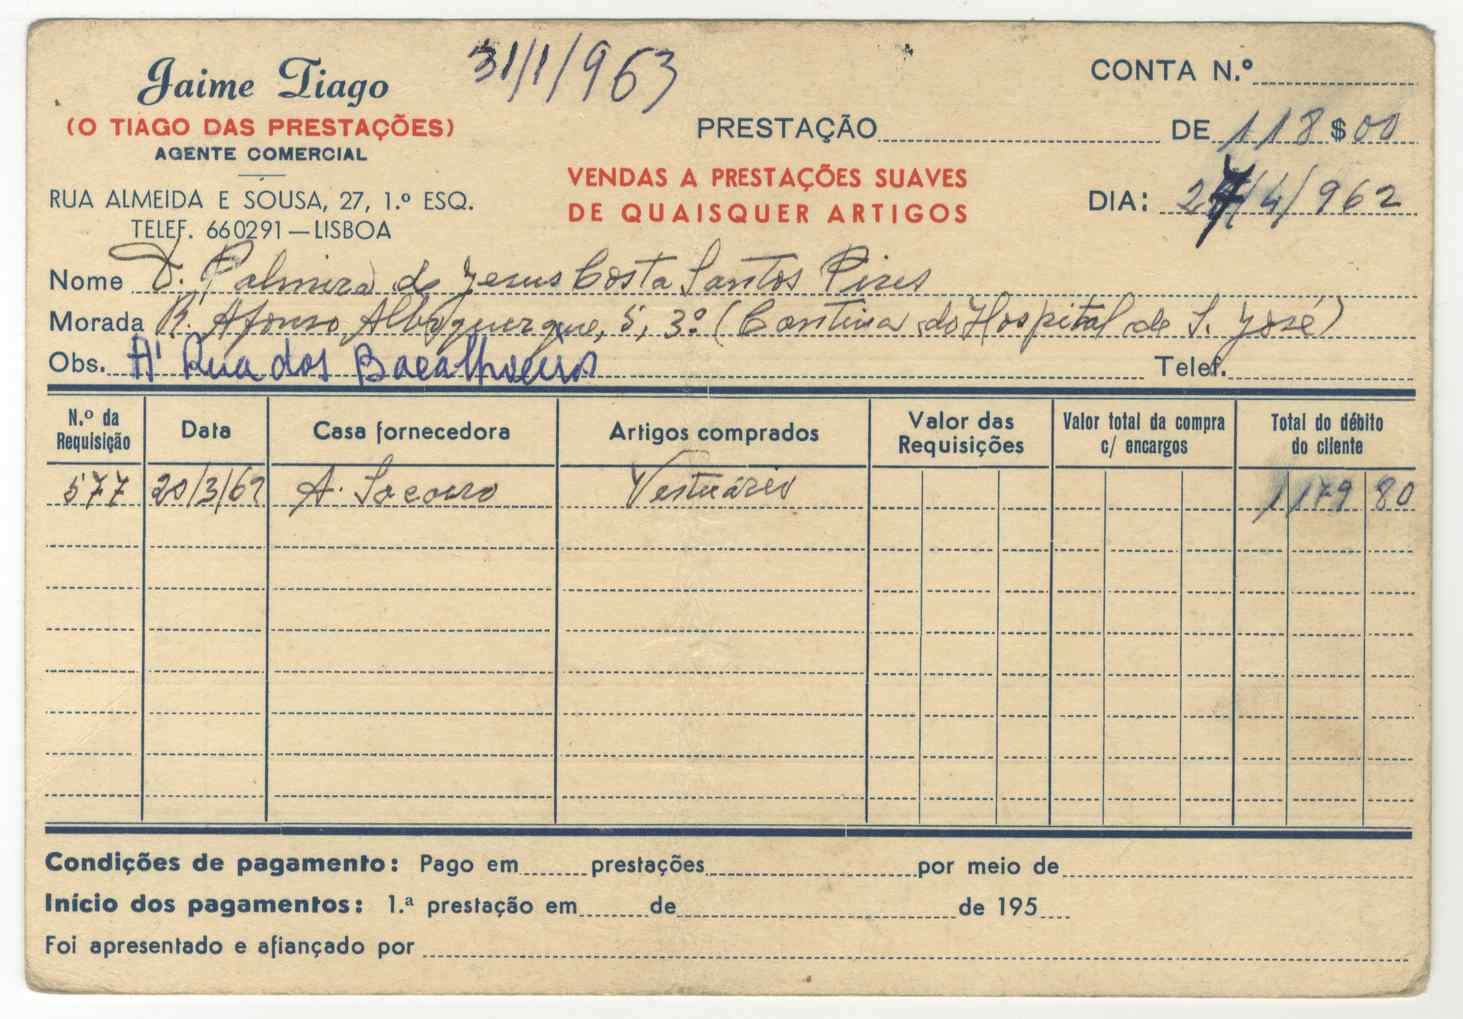 Jaime Tiago
(O TIAGO DAS PRESTAÇÕES)
AGENTE COMERCIAL
RUA ALMEIDA E SOUSA, 27, 1.º ESQ.
TELEF. 660291 — LISBOA
31/1/963
CONTA N.º
PRESTAÇÃO DE 118 $ 00
VENDAS A PRESTAÇÕES SUAVES
DE QUAISQUER ARTIGOS
DIA: 27/4/962
Nome D. Palmira de Jesus Costa Santos Pires
Morada R. Afonso Albuquerque, 5, 3.º (Cantina do Hospital de S. José)
Obs. À Rua dos Bacalhoeiros Telef.
N.º da Requisição Data Casa fornecedora Artigos comprados Valor das Requisições Valor total da compra c/ encargos Total do débito do cliente
577 20/3/62 A. Socorro Vestuário 1179 80
Condições de pagamento: Pago em prestações por meio de
Início dos pagamentos: 1.ª prestação em de de 195
Foi apresentado e afiançado por